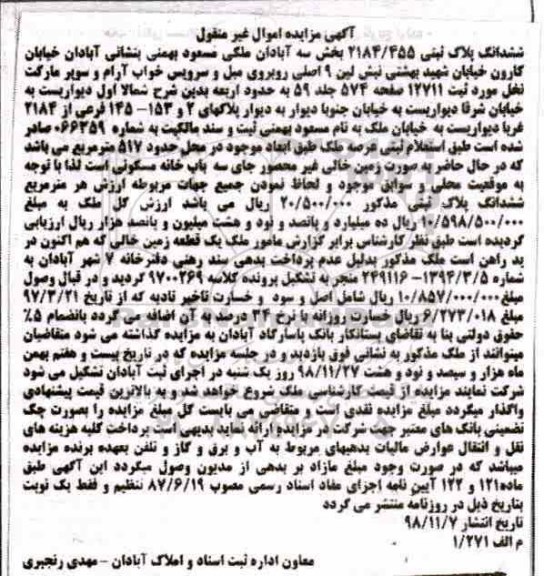 آگهی مزایده اموال غیر منقول
ششدانگ پلاک ثبتی ۲۱۸۴/۴۵۵ بخش سه آبادان ملکی مسعود بهمنی بنشانی آبادان خیابان
کارون خیابان شهید بهشتی نبش لین ۹ اصلی روبروی مبل و سرویس خواب آرام و سوپر مارکت
نخل مورد ثبت ۱۲۷۱۱ صفحه ۵۷۴ جلد ۵۹ به حدود اربعه بدین شرح شمالا اول دیواریست به
خیابان شرقا دیواریست به خیابان جنوبا دیوار به دیوار پلاکهای ۲ و ۱۵۳- ۱۴۵ فرعی از ۲۱۸۴
غربا دیواریست به خیابان ملک به نام مسعود بهمنی ثبت و سند مالکیت به شماره ۰۶۶۳۵۹ صادر
شده است طبق استعلام ثبتی عرصه ملک طبق ابعاد موجود در محل حدود ۵۱۷ مترمربع می باشد
که در حال حاضر به صورت زمین خالی غیر محصور جای سه باب خانه مسکونی است لذا با توجه
به موقعیت محلی و سوابق موجود و لحاظ نمودن جمیع جهات مربوطه ارزش هر مترمربع
ششدانگ پلاک ثبتی مذکور ۲۰/۵۰۰/۰۰۰ ریال می باشد ارزش کل ملک به مبلغ
۱۰/۵۹۸/۵۰۰/۰۰۰ ریال ده میلیارد و پانصد و نود و هشت میلیون و پانصد هزار ریال ارزیابی
گردیده است طبق نظر کارشناس برابر گزارش مامور ملک یک قطعه زمین خالی که هم اکنون در
ید راهن است ملک مذکور بدلیل عدم پرداخت بدهی سند رهنی دفترخانه ۷ شهر آبادان به
شماره ۱۳۹۴/۳/۵- ۲۴۹۱۱۶ منجر به تشکیل پرونده کلاسه ۹۷۰۰۲۶۹ گردید و در قبال وصول
مبلغ ۱۰/۸۵۷/۰۰۰/۰۰۰ ریال شامل اصل و سود و خسارت تاخیر تادیه که از تاریخ ۹۷/۳/۲۱
مبلغ ۶/۲۷۳/۰۱۸ ریال خسارت روزانه با نرخ ۳۴ درصد به آن اضافه می گردد بانضمام ۵٪
حقوق دولتی بنا به تقاضای بستانکار بانک پاسارگاد آبادان به مزایده گذاشته می شود متقاضیان
میتوانند از ملک مذکور به نشانی فوق بازدید و در جلسه مزایده که در تاریخ بیست و هفتم بهمن
ماه هزار و سیصد و نود و هشت ۹۸/۱۱/۲۷ روز یک شنبه در اجرای ثبت آبادان تشکیل می شود
شرکت نمایند مزایده از قیمت کارشناسی ملک شروع خواهد شد و به بالاترین قیمت پیشنهادی
واگذار میگردد مبلغ مزایده نقدی است و متقاضی می بایست کل مبلغ مزایده را بصورت چک
تضمینی بانک های معتبر جهت شرکت در مزایده ارائه نماید بدیهی است پرداخت کلیه هزینه های
نقل و انتقال عوارض مالیات بدهیهای مربوط به آب و برق و گاز و تلفن بعهده برنده مزایده
میباشد که در صورت وجود مبلغ مازاد بر بدهی از مدیون وصول میگردد این آگهی طبق
ماده ۱۲۱ و ۱۲۲ آیین نامه اجرای مفاد اسناد رسمی مصوب ۸۷/۶/۱۹ تنظیم و فقط یک نوبت
بتاریخ ذیل در روزنامه منتشر می گردد
تاریخ انتشار ۹۸/۱۱/۷
م الف ۱/۲۷۱
معاون اداره ثبت اسناد و املاک آبادان – مهدی رنجبری